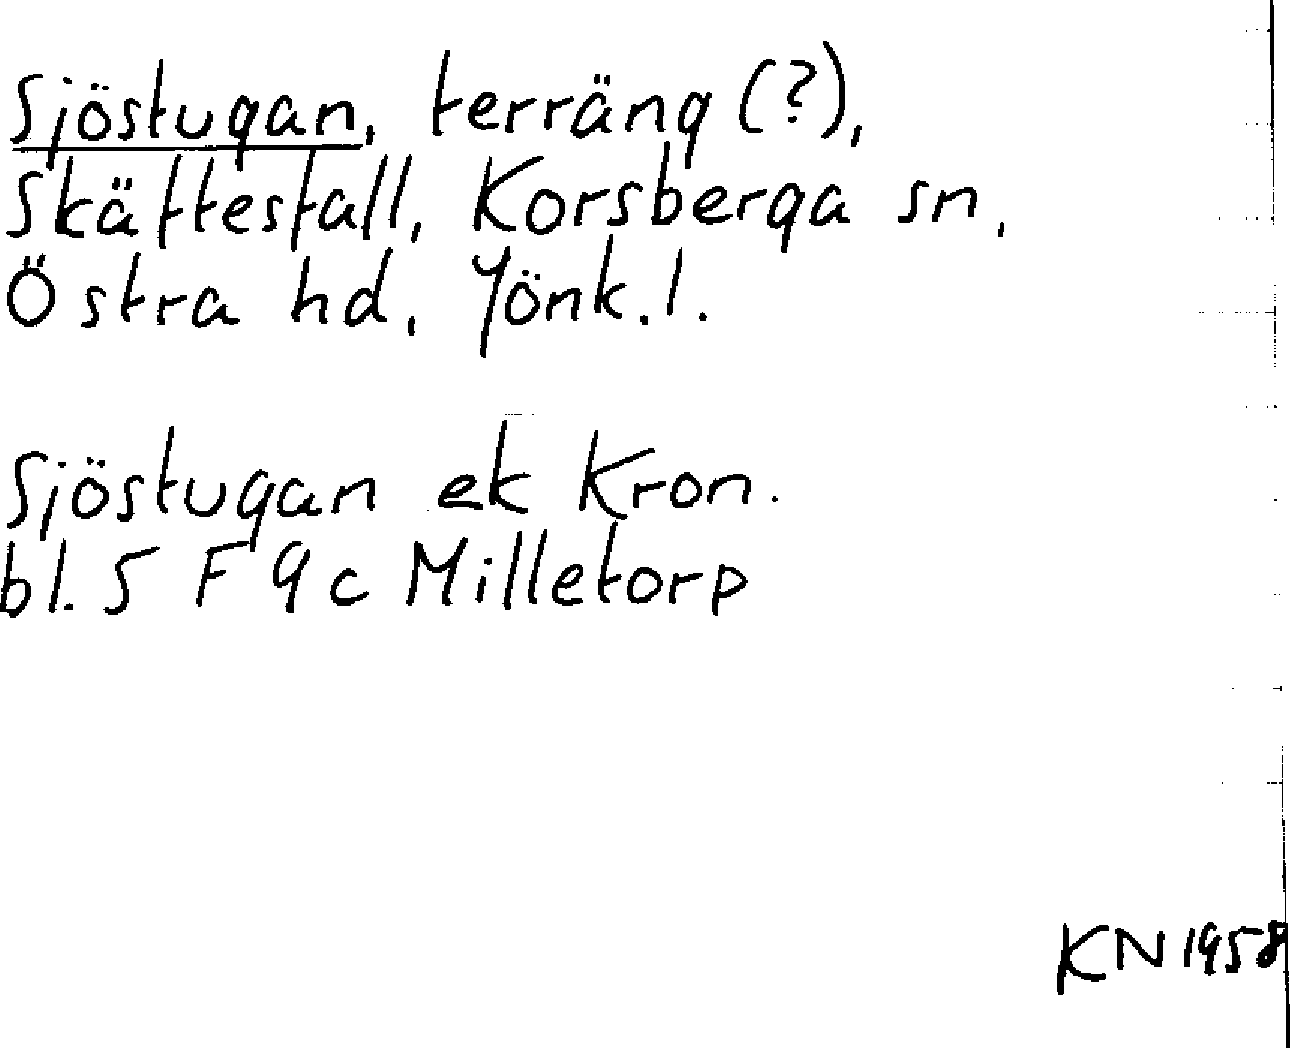 Sjöstugan, terräng (?),
Skättesfall, Korsberga sn,
Östra hd, Jönk. l.
Sjöstugan ek Kron.
bl. 5 F 9 c Milletorp
KN 1958